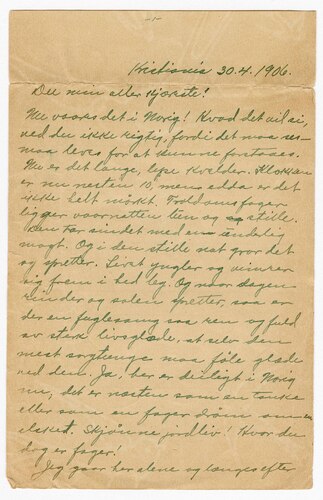 -1-
Kristiania 30.4.1906.
Du min aller kjæreste!
Nu vaarks det i Norig! Hvad det vil si,
ved du ikke rigtig, fordi det maa sel-
maa leves for at kunne forstaaes.
Nu er det lange, lyse kvelder. Klokken
er nu nesten 10, mens alda er det
ikke helt mörkt. Troddomsfager
ligger vaarnatten tien og stille.
Den tar sindet med en underlig
magt. Og i den stille nat gror det
og spretter. Livet yngler og vimrer
sig frem i hed leg. Og naar dagen
rinder og solen spretter, saa er
der en fuglesang saa ren og fuld
av sterk livsglæde, at selv den
mest sorgtynge maa föle glæde
ved den. Ja, her er deiligt i Norig
nu, det er næsten som en tanke
eller som en fager dröm om en
elsket. Skjönne jordliv! Hvor du
dog er fager!
Jeg gaar her alene og langes efter